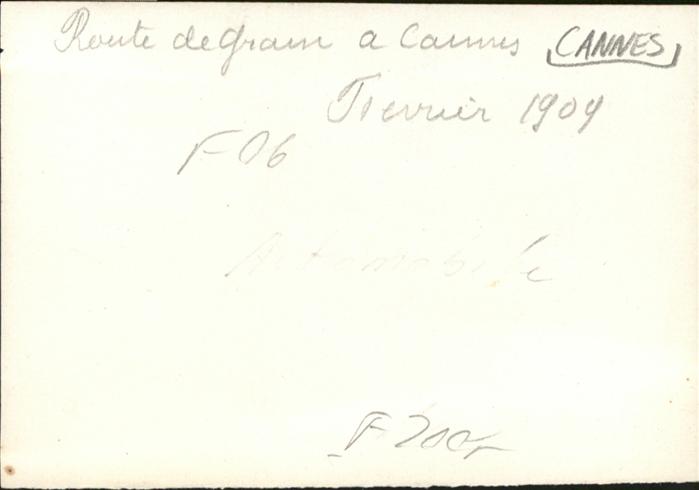 Route de Grasse a Cannes CANNES
Fevrier 1909
F 06
Automobile
F 200F